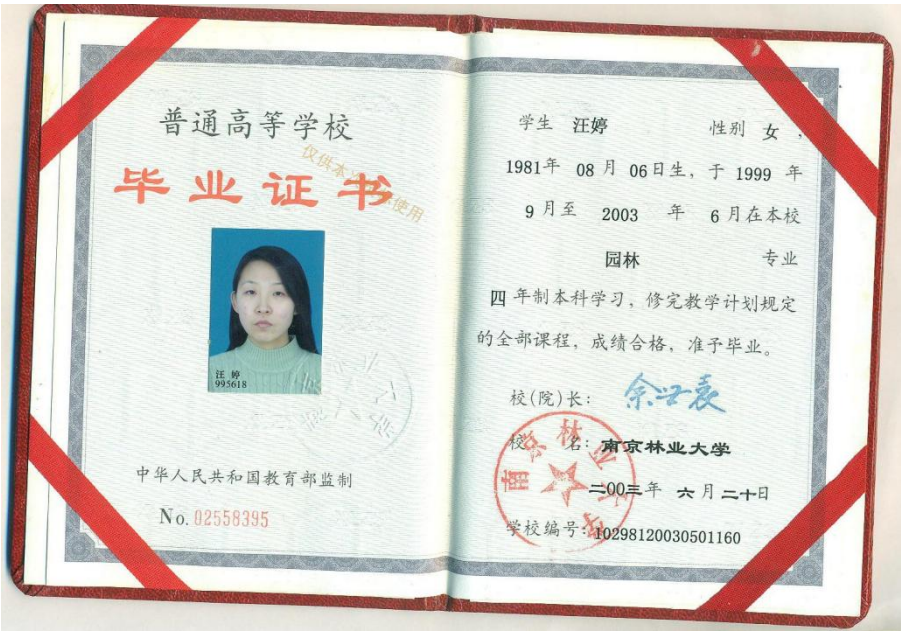 普通高等学校
毕业证书
仅供本次
使用
汪婷
995618
中华人民共和国教育部监制
No. 02558395
学生 汪婷 性别 女,
1981年 08 月 06日生, 于 1999 年
9 月至 2003 年 6 月在本校
园林 专业
四 年制本科学习, 修完教学计划规定
的全部课程, 成绩合格, 准予毕业。
校(院)长: 余世袁
校 名: 南京林业大学
二00三年 六 月 二十日
学校编号: 10298120030501160
南京林业大学